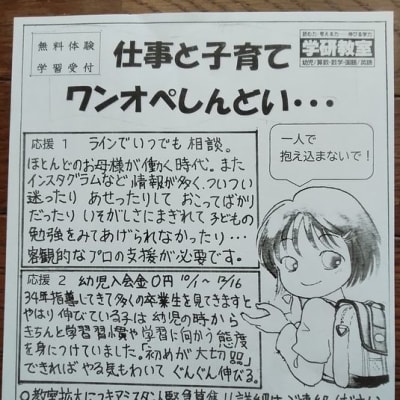 無料体験
学習受付
読む力・考える力 伸びる学力
学研教室
幼児/算数・数学・国語/英語
仕事と子育て
ワンオペしんどい・・・
応援 1 ラインでいつでも相談。
ほとんどのお母様が働く時代。また
インスタグラムなど情報が多く、ついつい
迷ったり あせったりして おこってばかり
だったり いそがしさにまぎれて子どもの
勉強をみてあげられなかったり・・・
客観的なプロの支援が必要です。
一人で
抱え込まないで!
応援 2 幼児入会金0円 10/1〜12/16
34年指導してきて多くの卒業生を見てきますと
やはり伸びている子は幼児の時から
きちんと学習習慣や学習に向かう態度
を身につけていました。「初めが大切」
できればやる気もわいて ぐんぐん伸びる。